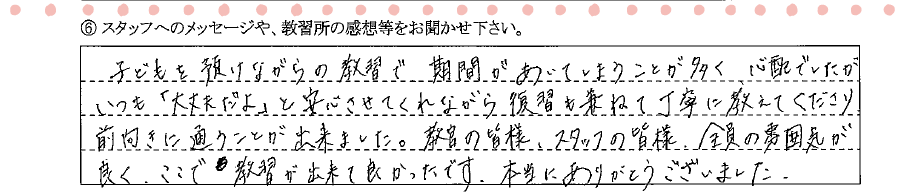 ⑥ スタッフへのメッセージや、教習所の感想等をお聞かせ下さい。
子どもを預けながらの教習で 期間があいてしまうことが多く 心配でしたが
いつも「大丈夫だよ」と安心させてくれながら 復習も兼ねて丁寧に教えてくださり
前向きに通うことが出来ました。教官の皆様、スタッフの皆様、全員の雰囲気が
良く、ここで教習が出来て良かったです。本当にありがとうございました。